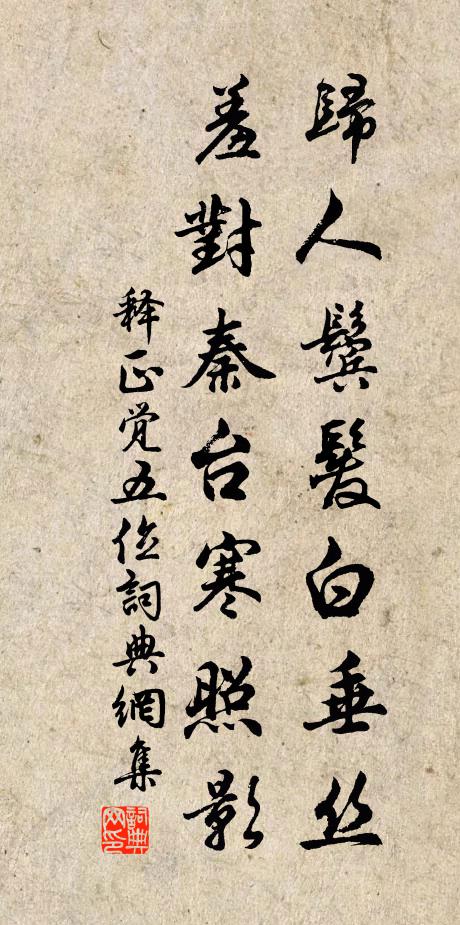 歸人鬢髮白垂丝
羞對秦台寒照影
释正觉五位詞典網集
詞典网印